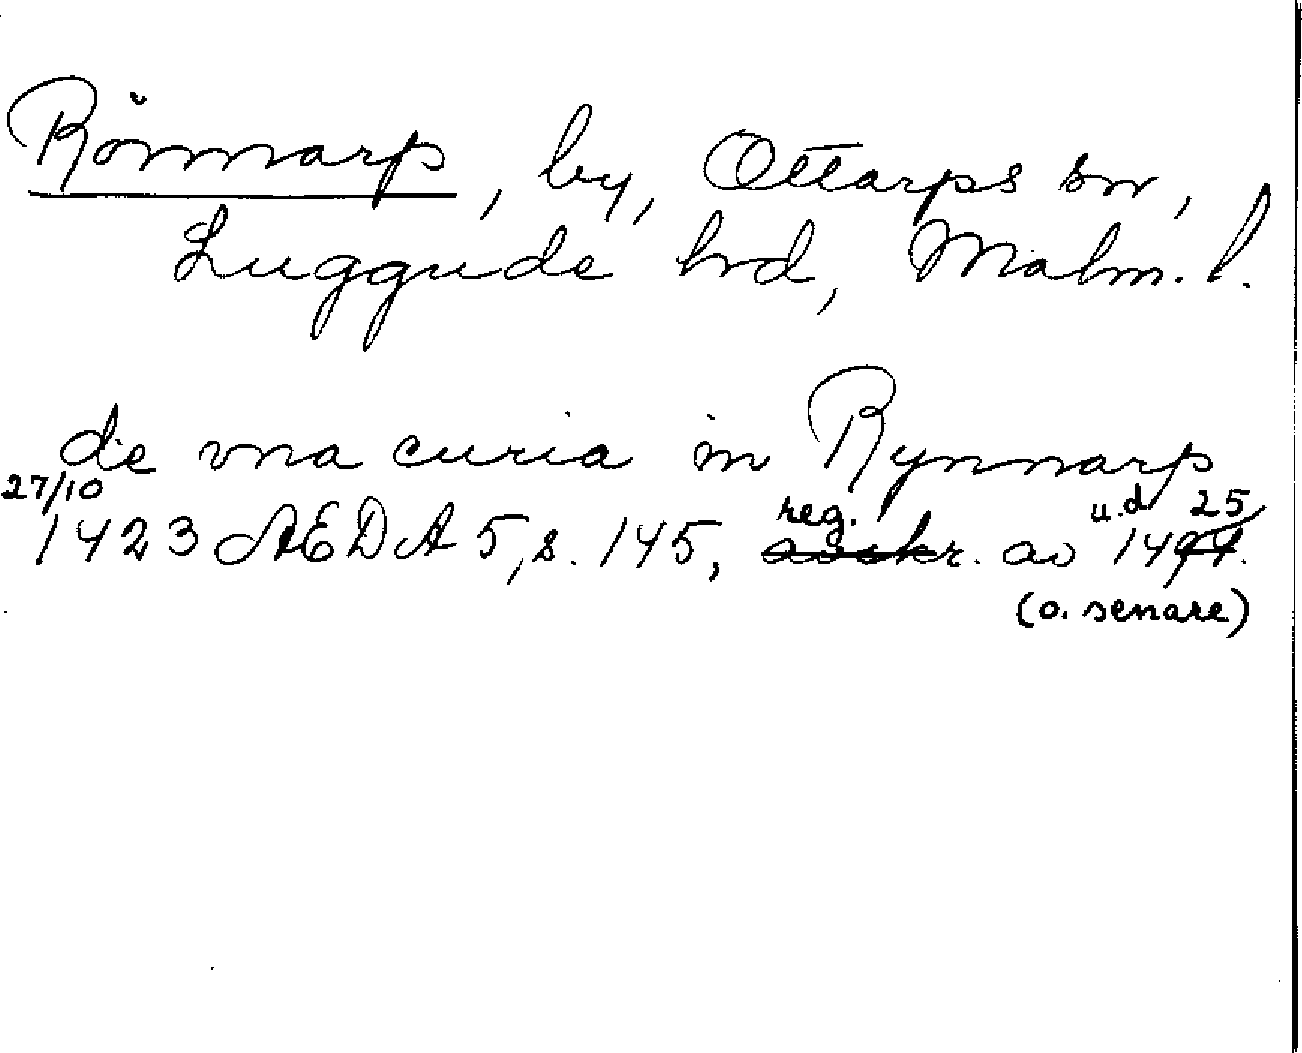 Rönnarp, by, Ottarps sn,
Luggude hrd, Malm. l.
de vna curia in Rynnarp
27/10 reg. u.d 25
1423 AEDA 5, s. 145, avskr. av 1494.
(o. senare)